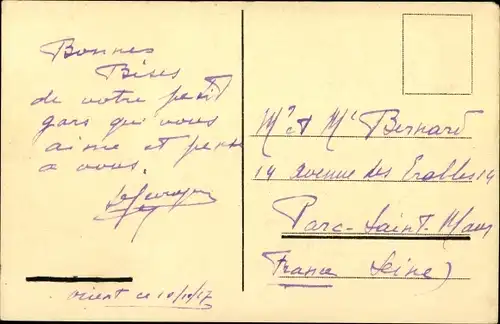 Bonnes
Bises
de votre petit
gars qui vous
aime et pense
a vous.
orient ce 10/10/17
Mr et Me Bernard
14 avenue des Erables 14
Parc-Saint-Maur
France Seine)